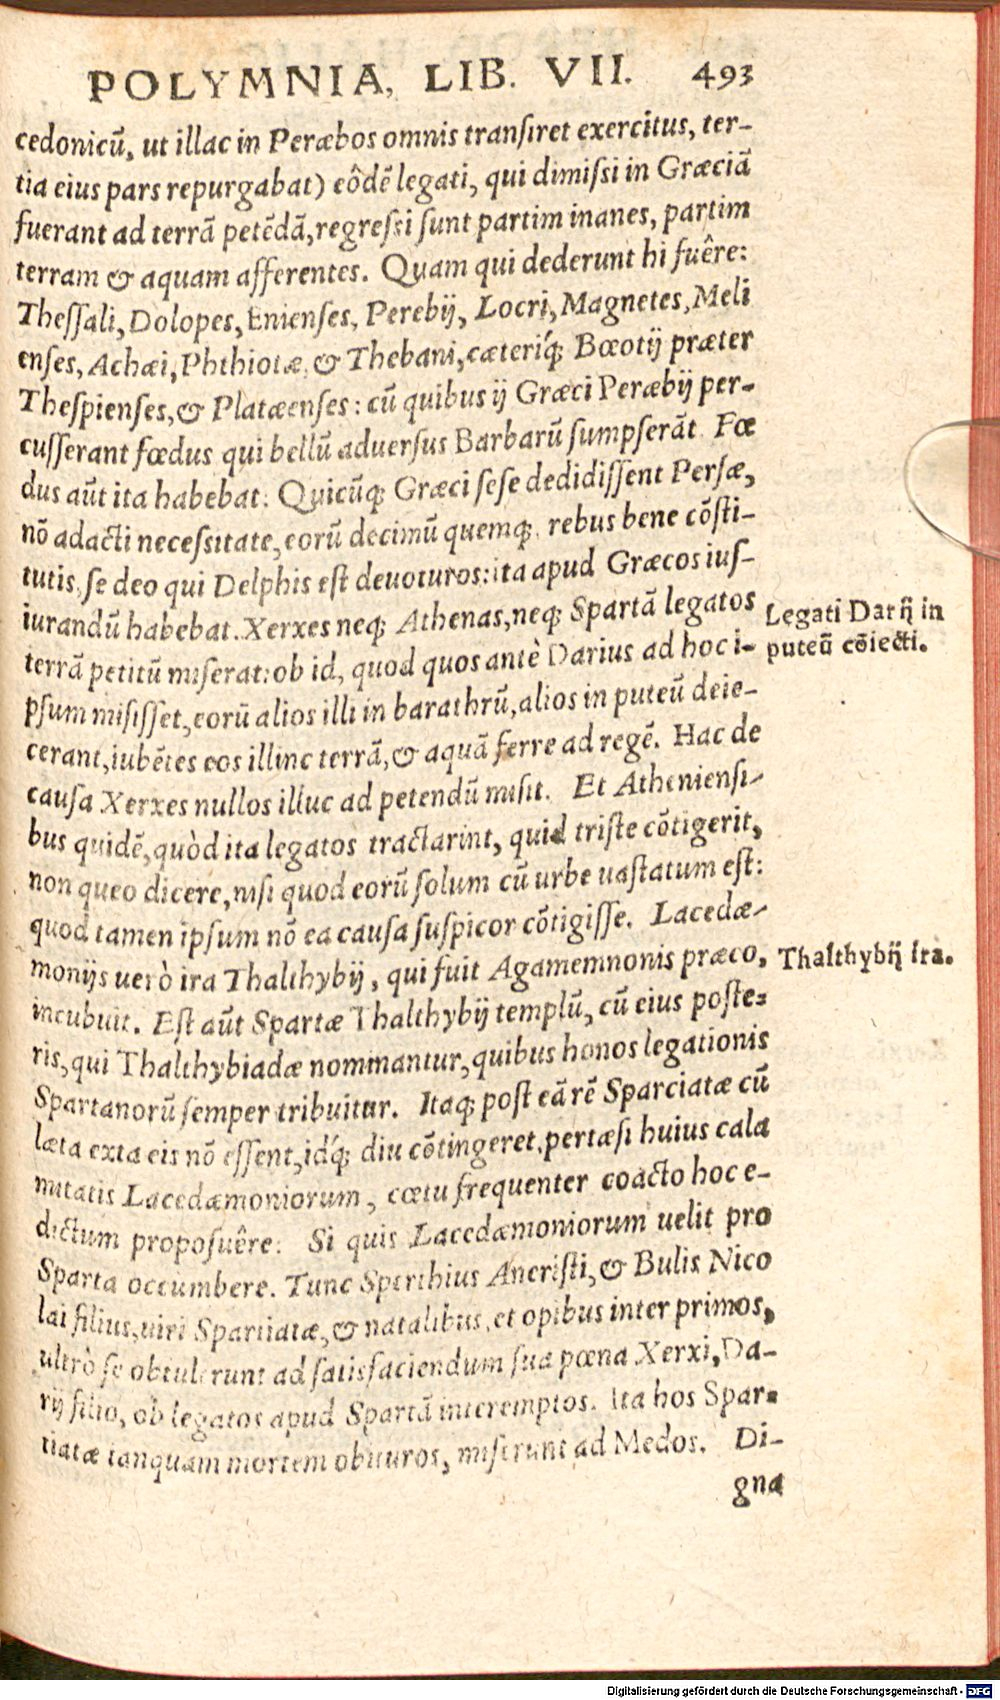 POLYMNIA, LIB. VII. 493
cedonicũ, ut illac in Peræbos omnis transiret exercitus, ter-
tia eius pars repurgabat) eôdẽ legati, qui dimissi in Græciã
fuerant ad terrã petẽdã, regressi sunt partim inanes, partim
terram & aquam afferentes. Quam qui dederunt hi fuêre:
Thessali, Dolopes, Enienses, Perebij, Locri, Magnetes, Meli
enses, Achæi, Phthiotæ, & Thebani, cæteriq́; Bœotij præter
Thespienses, & Platæenses: cũ quibus ij Græci Peræbij per-
cusserant fœdus qui bellũ aduersus Barbarũ sumpserãt. Fœ
dus aũt ita habebat: Quicũq; Græci sese dedidissent Persæ,
nõ adacti necessitate, eorũ decimũ quemq; rebus bene cõsti-
tutis, se deo qui Delphis est deuoturos: ita apud Græcos ius-
iurandũ habebat. Xerxes neq; Athenas, neq; Spartã legatos
terrã petitũ miserat: ob id, quod quos antè Darius ad hoc i-
psum misisset, eorũ alios illi in barathrũ, alios in puteũ deie-
cerant, iubẽtes eos illinc terrã, & aquã ferre ad regẽ. Hac de
causa Xerxes nullos illuc ad petendũ misit. Et Atheniensi-
bus quidẽ, quòd ita legatos tractarint, quid triste cõtigerit,
non queo dicere, nisi quod eorũ solum cũ urbe uastatum est:
quod tamen ipsum nõ ea causa suspicor cõtigisse. Lacedæ-
monijs uerò ira Thalthybij, qui fuit Agamemnonis præco,
incubuit. Est aũt Spartæ Thalthybij templũ, cũ eius poste-
ris, qui Thalthybiadæ nominantur, quibus honos legationis
Spartanorũ semper tribuitur. Itaq; post eã rẽ Sparciatæ cũ
læta exta eis nõ essent, idq́; diu cõtingeret, pertæsi huius cala
mitatis Lacedæmoniorum, cœtu frequenter coacto hoc e-
dictum proposuêre: Si quis Lacedæmoniorum uelit pro
Sparta occumbere. Tunc Sperthius Aneristi, & Bulis Nico
lai filius, uiri Spartiatæ, & natalibus, et opibus inter primos,
ultrò se obtulerunt ad satisfaciendum sua pœna Xerxi, Da-
rij filio, ob legatos apud Spartã interemptos. Ita hos Spar-
tiatæ tanquam mortem obituros, miserunt ad Medos. Di-
gna
Legati Darij in
puteũ cõiecti.
Thalthybij ira.
Digitalisierung gefördert durch die Deutsche Forschungsgemeinschaft - DFG